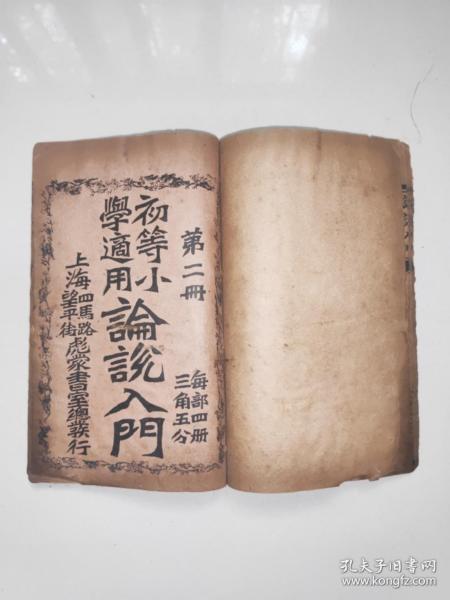 第二冊
每部四册
三角五分
初等小
學適用
論説入門
上海
四馬路
望平街
彪蒙書室總發行
孔夫子旧书网
www.kongfz.com